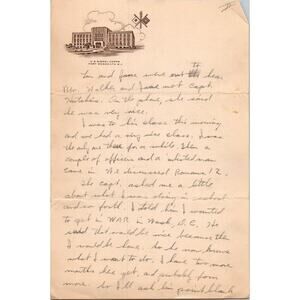 U.S. SIGNAL CORPS
FORT MONMOUTH, N.J.
and Jane were out to hear
Mr. Walker and Jane met Capt.
Hutchins. As the plane, she said
he was very nice.
I was to his class this morning
and we had a very nice class. I was
the only one there for a while. Then a
couple of officers and a enlisted man
came in. We discussed Romans 12.
The capt. asked me a little
about what I was doing in school
and so forth. I told him I wanted
to get in WAR in Wash, D.C. He
said that would be nice because then
I would be home. So he now knows
what I want to do. I have two more
months here yet, and probably from
more. So I'll ask him point blank